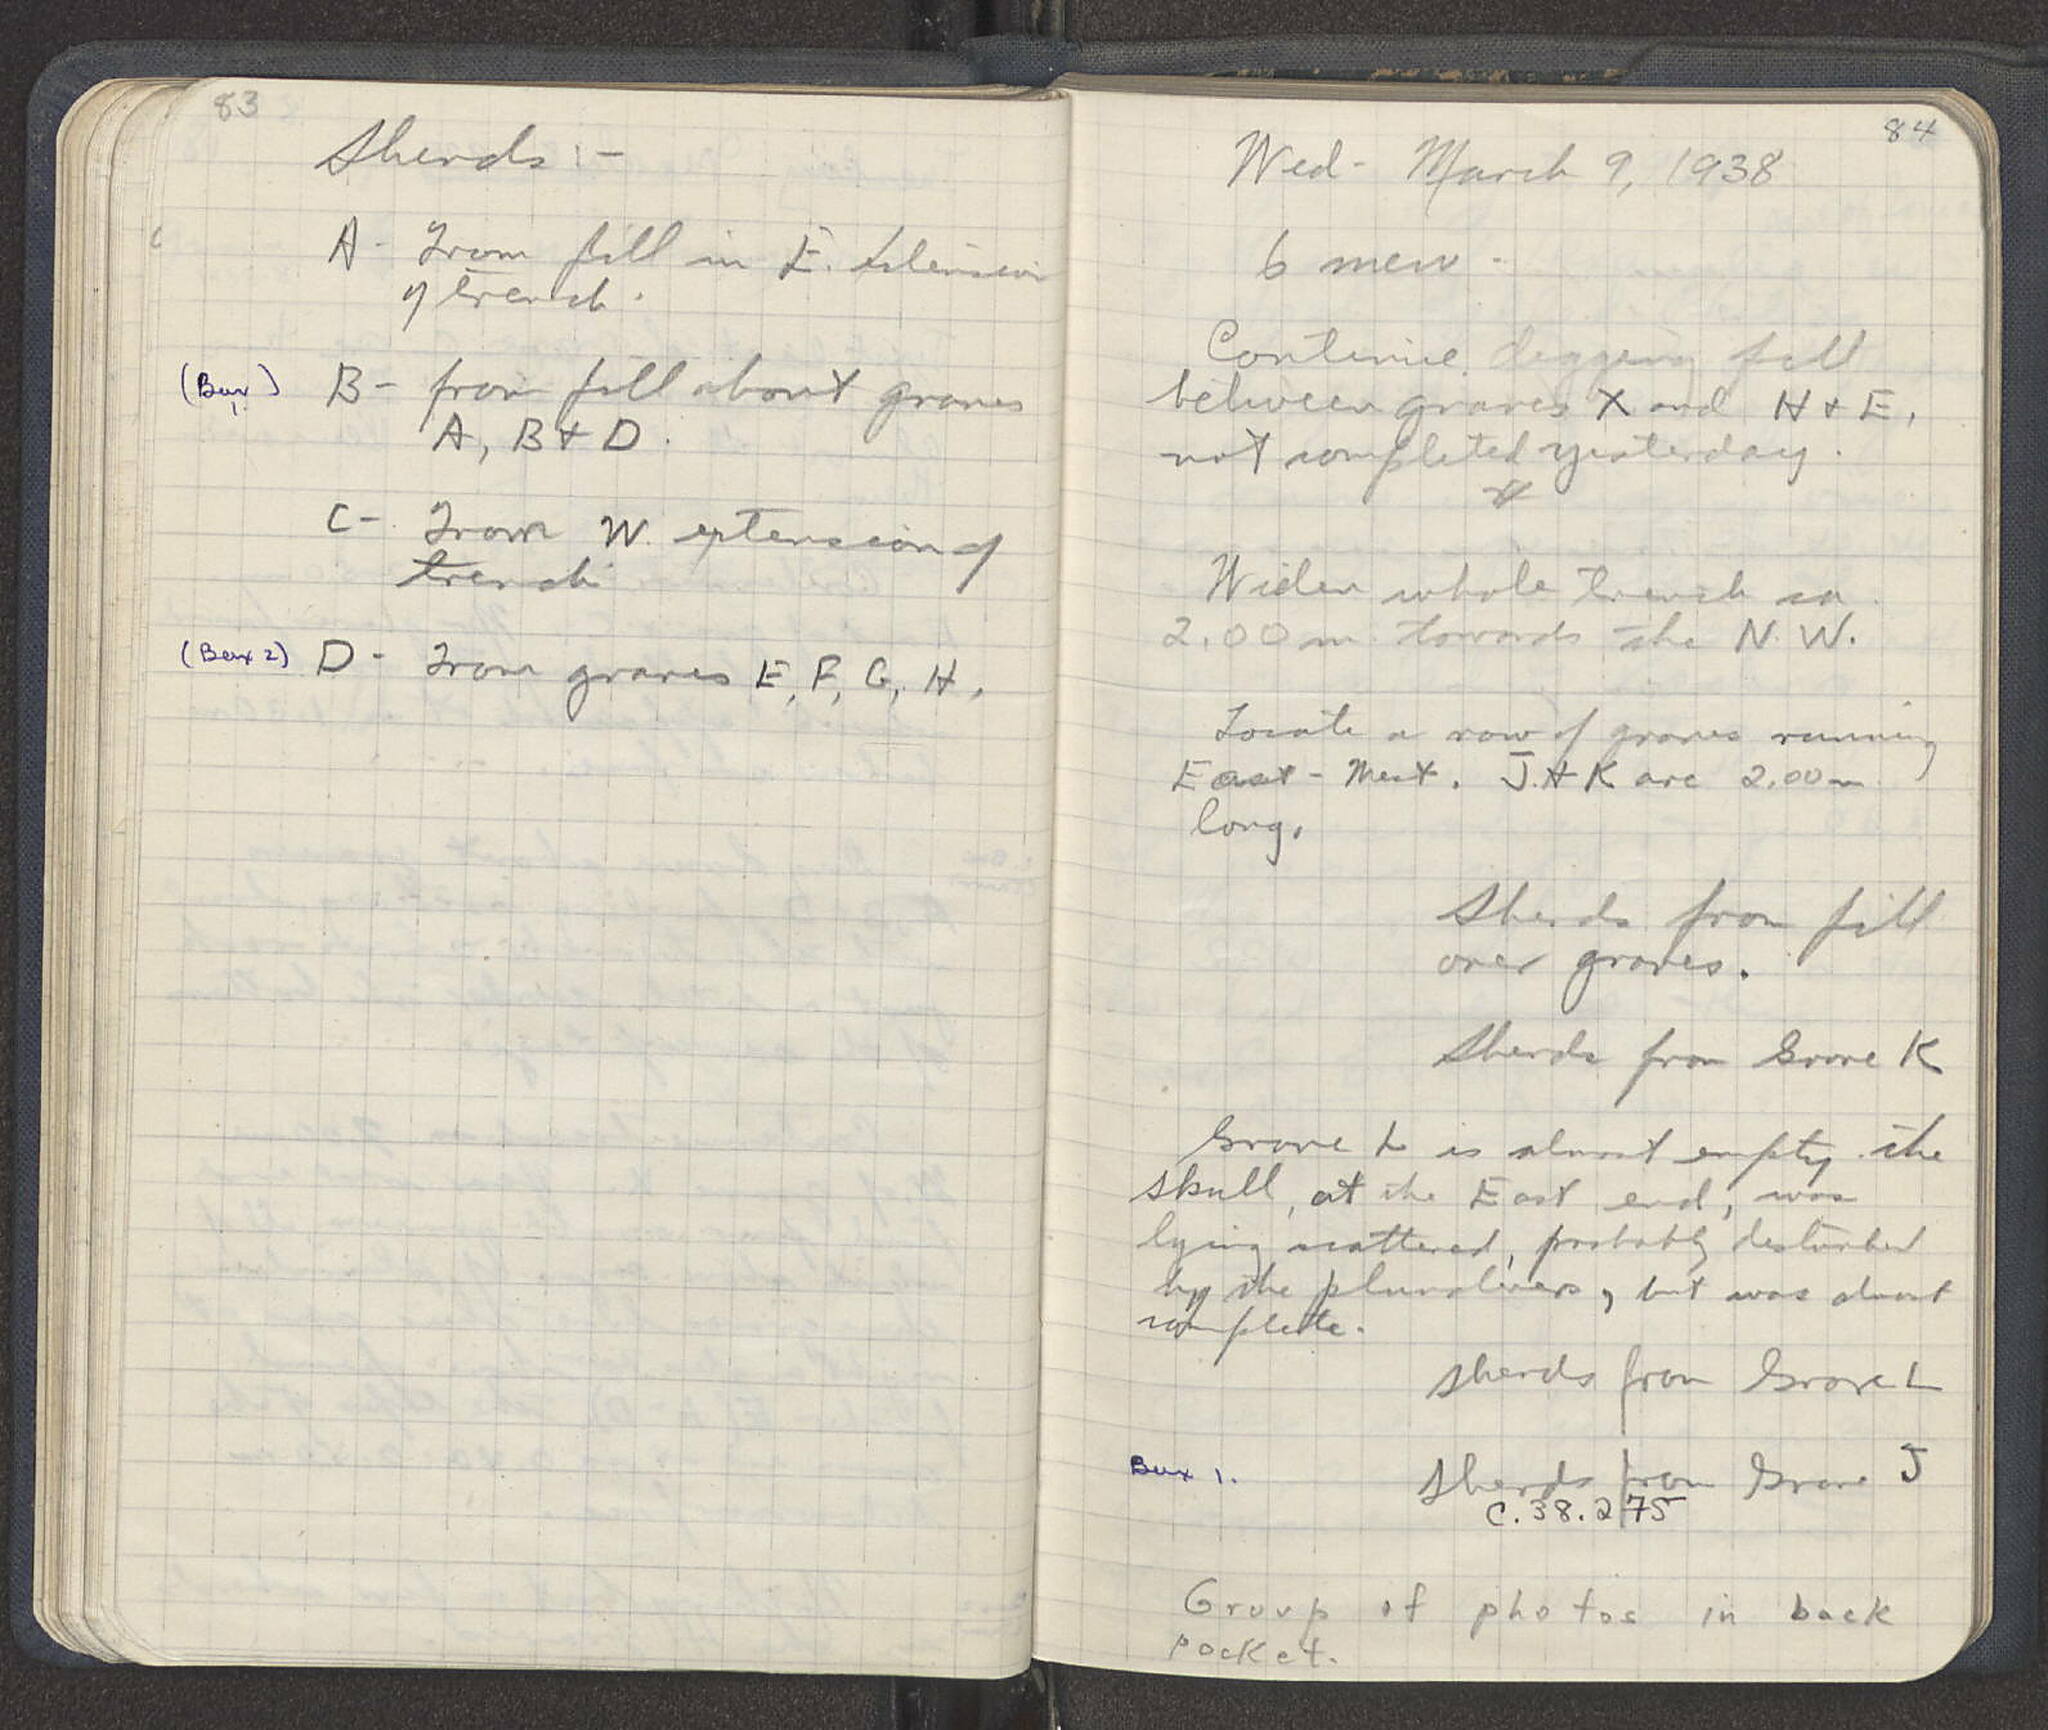 83
Sherds :-
A - From fill in E. Extension
of trench.
(Box 1.) B - from fill about graves
A, B + D.
C - From W. extension of
trench
(Box 2) D - From graves E, F, G, H,
84
Wed - March 9, 1938
6 men -
Continue digging fill
between graves X and H + E,
not completed yesterday.
Widen whole trench ca
2.00 m. towards the N.W.
Locate a row of graves running
East - West. J. + K are 2.00 m
long.
Sherds from fill
over graves.
Sherds from Grave K
Grave L is almost empty. the
skull, at the East end, was
lying scattered, probably disturbed
by the plunderers, but was almost
complete.
Sherds from Grave L
Box 1. Sherds from Grave J
C.38.275
Group of photos in back
pocket.